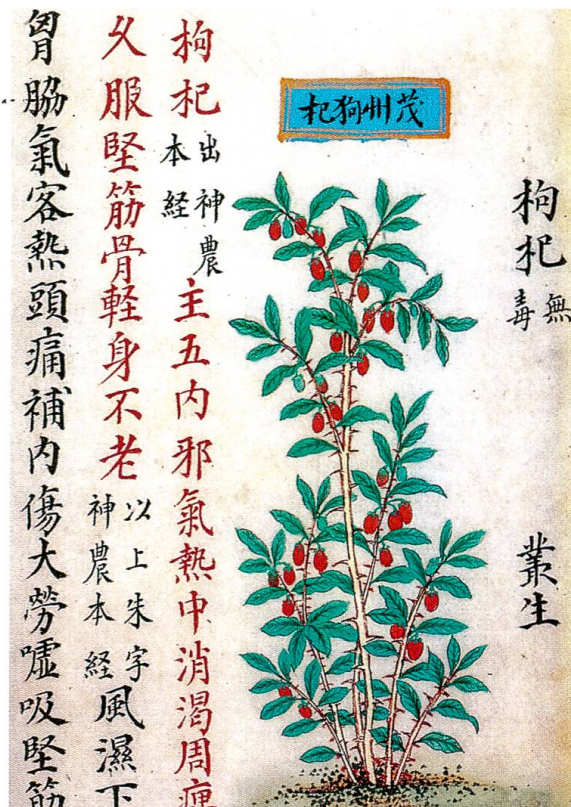 枸杞無毒
叢生
茂州狗杞
枸杞出神農本経主五内邪氣熱中消渴周痺
久服堅筋骨軽身不老以上朱字神農本経風濕下
胷脇氣客熱頭痛補内傷大勞嘘吸堅筋